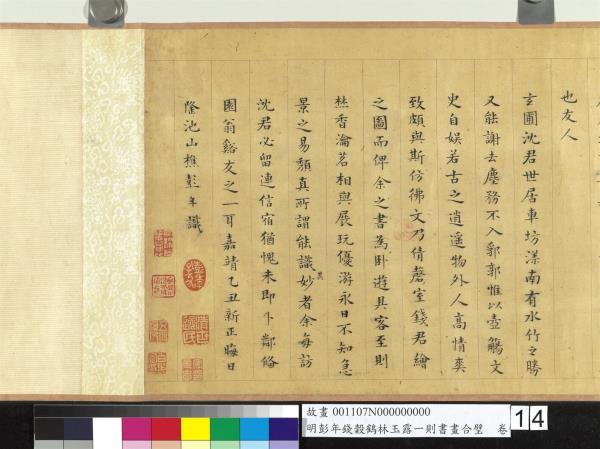 也友人
玄圃沈君世居車坊漾南有水竹之勝
又能謝去塵務不入郛郭惟以壺觴文
史自娛若古之逍遥物外人高情奕
致頗與斯仿彿文乃倩磬室錢君繪
之圖而俾余之書為卧遊具客至則
焚香瀹茗相與展玩優游永日不知急
景之易頽真所謂能識其妙者余每訪
沈君必留連信宿猶愧未即卜鄰偹
園翁谿友之一耳嘉靖乙丑新正晦日
隆池山樵彭年識
故畫 001107N000000000
明彭年錢穀鶴林玉露一則書畫合璧 卷
14